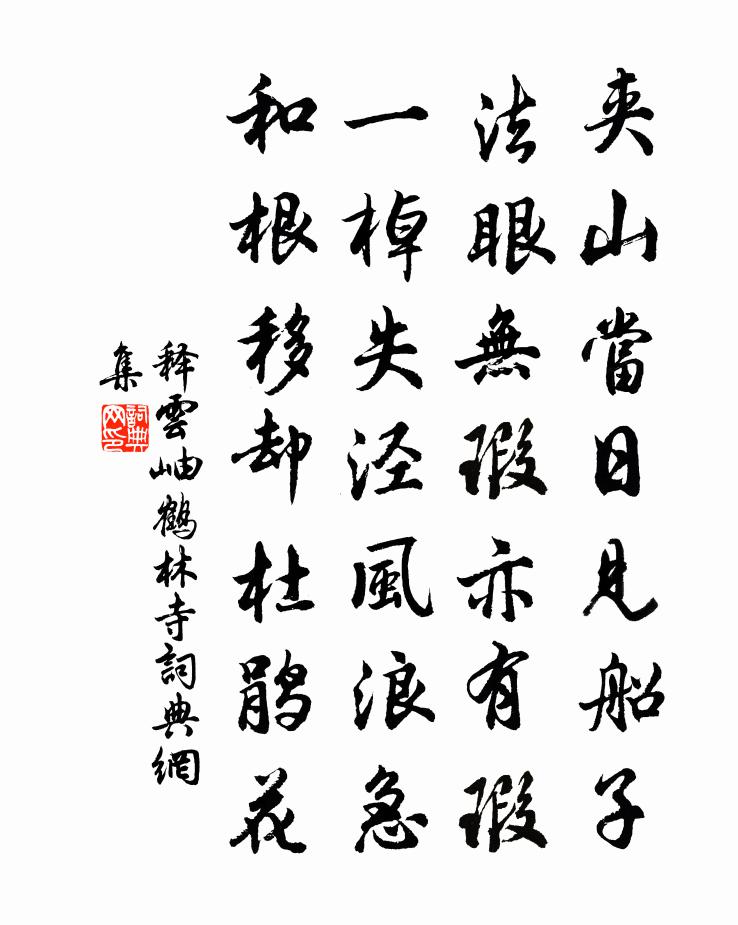 夹山當日見船子
法眼無瑕亦有瑕
一棹失泾風浪急
和根移却杜鹃花
释雲岫鶴林寺詞典網
集
詞典网印